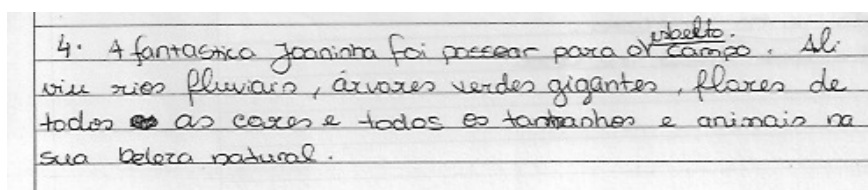 4. A fantastica Joaninha foi passear para o esbelto campo. Ali
viu rios fluviais, árvores verdes gigantes, flores de
todos as cores e todos os tamanhos e animais na
sua beleza natural.